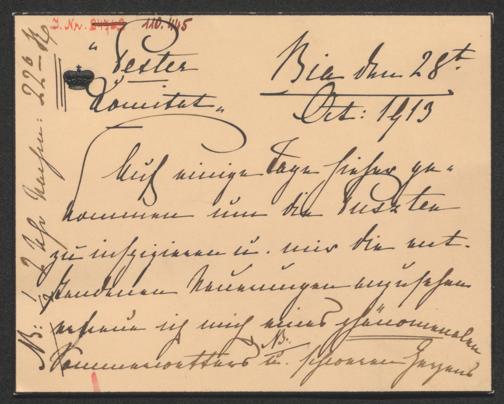 I. Nr. 110.445
"Pester
Komitat"
Bia den 28t
Oct: 1913
Auf einige Tage hieher ge-
kommen um die Puszten
zu inspizieren u. mir die ent-
standenen Neuerungen anzusehen
erfreue ich mich eines phänomenalen
Sommerwetters u. schönen
NB:
NB: 1/2 2 Uhr 22° R